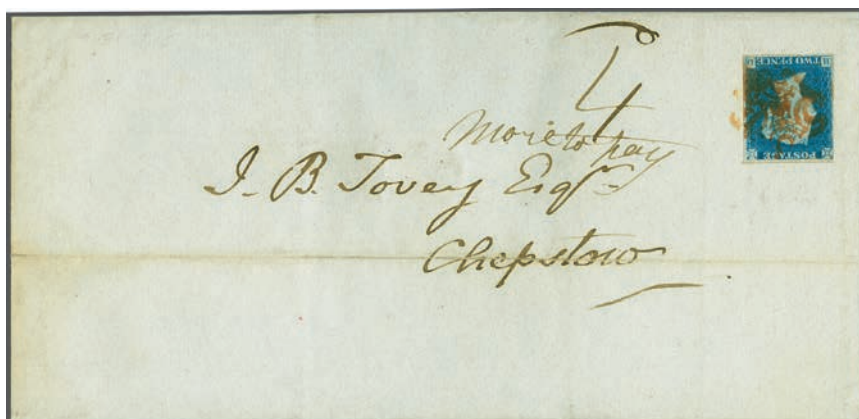 4
More to pay
J. B. Tovey Esqr
Chepstow
POSTAGE
TWO PENCE